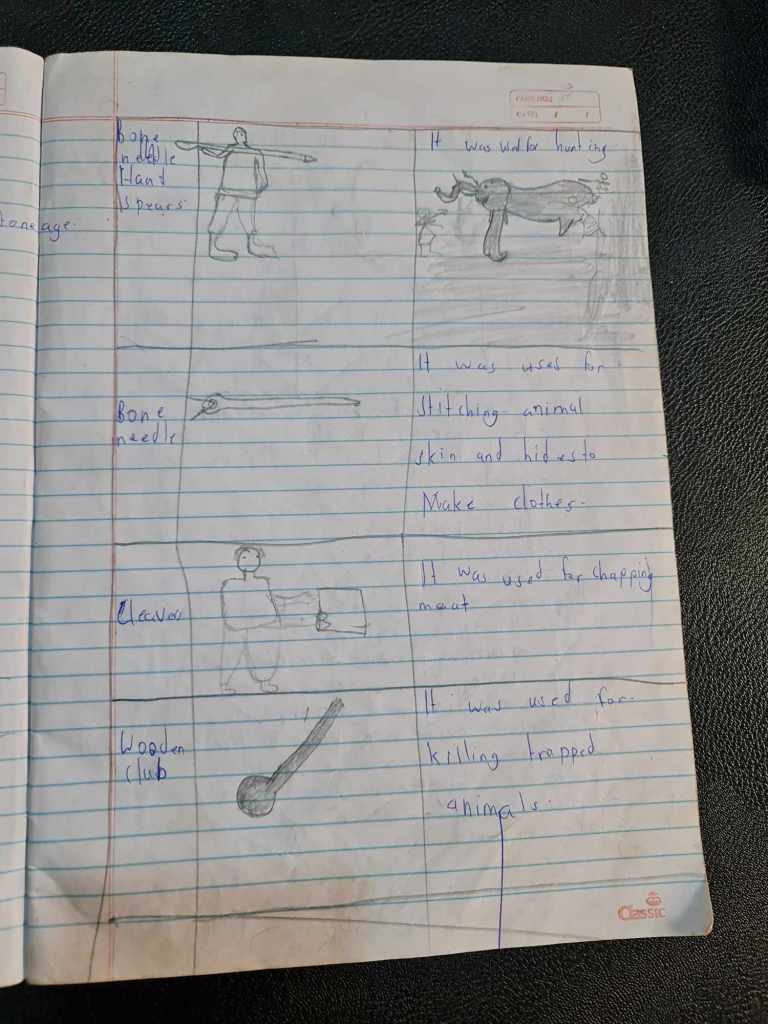 Bone
needle
Hand
spears
It was usd for hunting.
Bone
needle
It was uses for
Stitching animal
skin and hides to
Make clothes.
Cleaver
It was used for chapping
meat
Wooden
club
It was used for.
killing trapped
animals.
Classic